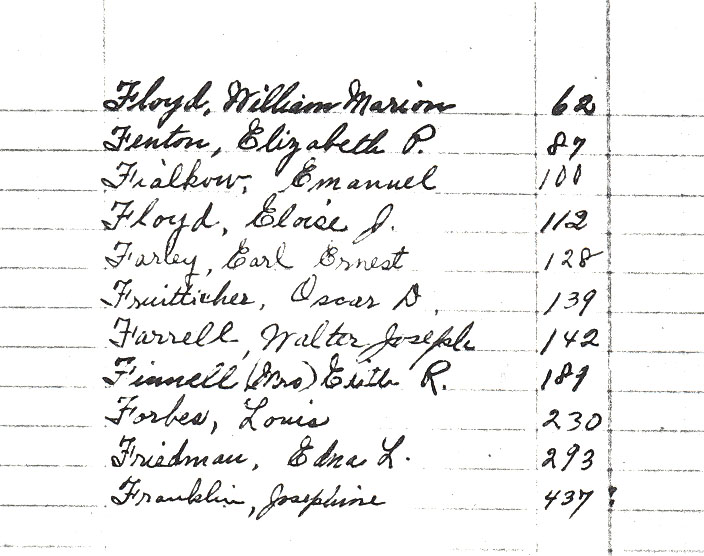 Floyd, William Marion 62
Fenton, Elizabeth P. 87
Fialkow, Emanuel 100
Floyd, Eloise J. 112
Farley, Earl Ernest 128
Fruitticher, Oscar D. 139
Farrell, Walter Joseph 142
Finnell (Mrs) Edith R. 189
Forbes, Louis 230
Friedman, Edna L. 293
Franklin, Josephine 437